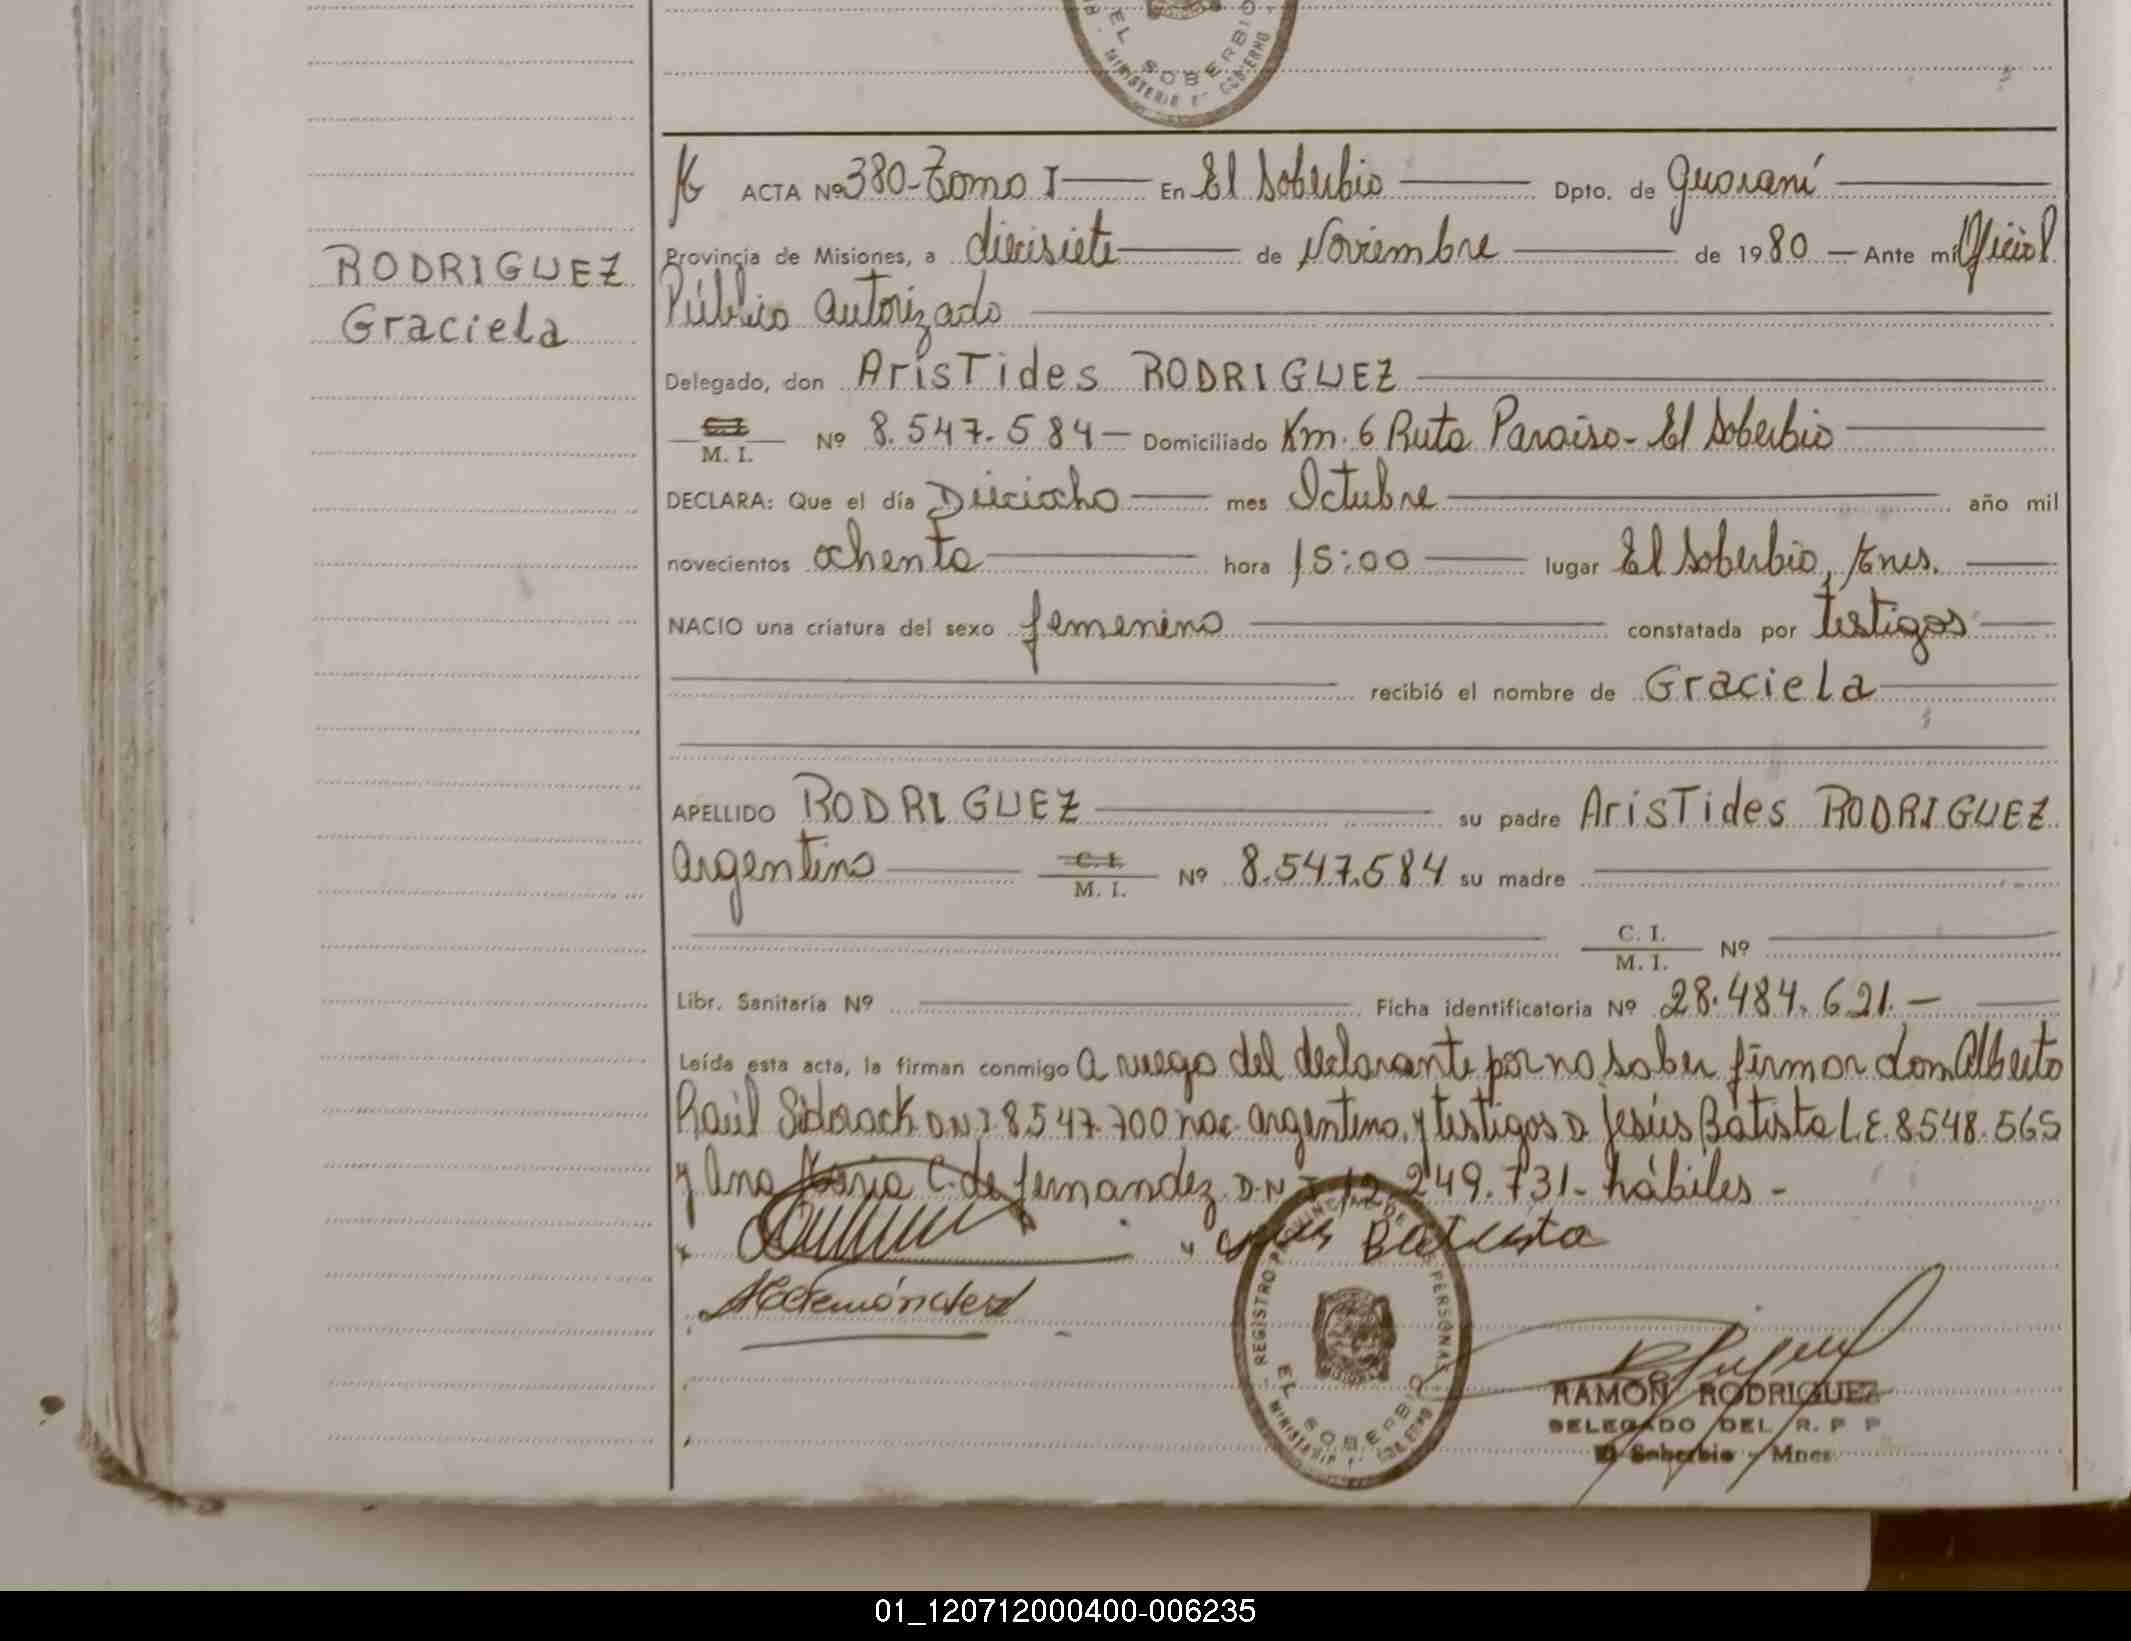 EL SOBERBIO
MINISTERIO DE GOBIERNO
ACTA Nº 380-Tomo I En El Soberbio Dpto. de Guaraní
RODRIGUEZ
Graciela
Provincia de Misiones, a diecisiete de Noviembre de 1980 — Ante mi Oficial
Público autorizado
Delegado, don ArisTides RODRIGUEZ
C.I.
M. I. Nº 8.547.584 — Domiciliado Km. 6 Ruta Paraiso - El Soberbio
DECLARA: Que el día Dieciocho mes Octubre año mil
novecientos ochenta hora 15:00 lugar El Soberbio,
NACIO una criatura del sexo femenino constatada por testigos
recibió el nombre de Graciela
APELLIDO RODRIGUEZ su padre ArisTides RODRIGUEZ
argentino C.I.
M. I. Nº 8.547.584 su madre
C. I.
M. I. Nº
Libr. Sanitaria Nº Ficha identificatoria Nº 28.484.621.-
Leída esta acta, la firman conmigo a ruego del declarante por no saber firmar don Alberto
Raúl D.N.I 8.547.700 nac. argentino, y testigos D. Jesús Batista L.E. 8.548.565
y Ana Maria C. de Fernandez D.N.I 12.249.731- hábiles -
Batista
REGISTRO PROVINCIAL DE LAS PERSONAS
EL SOBERBIO
MINISTERIO DE GOBIERNO
RAMON RODRIGUEZ
DELEGADO DEL R. P P
El Soberbio - Mnes.
01_120712000400-006235